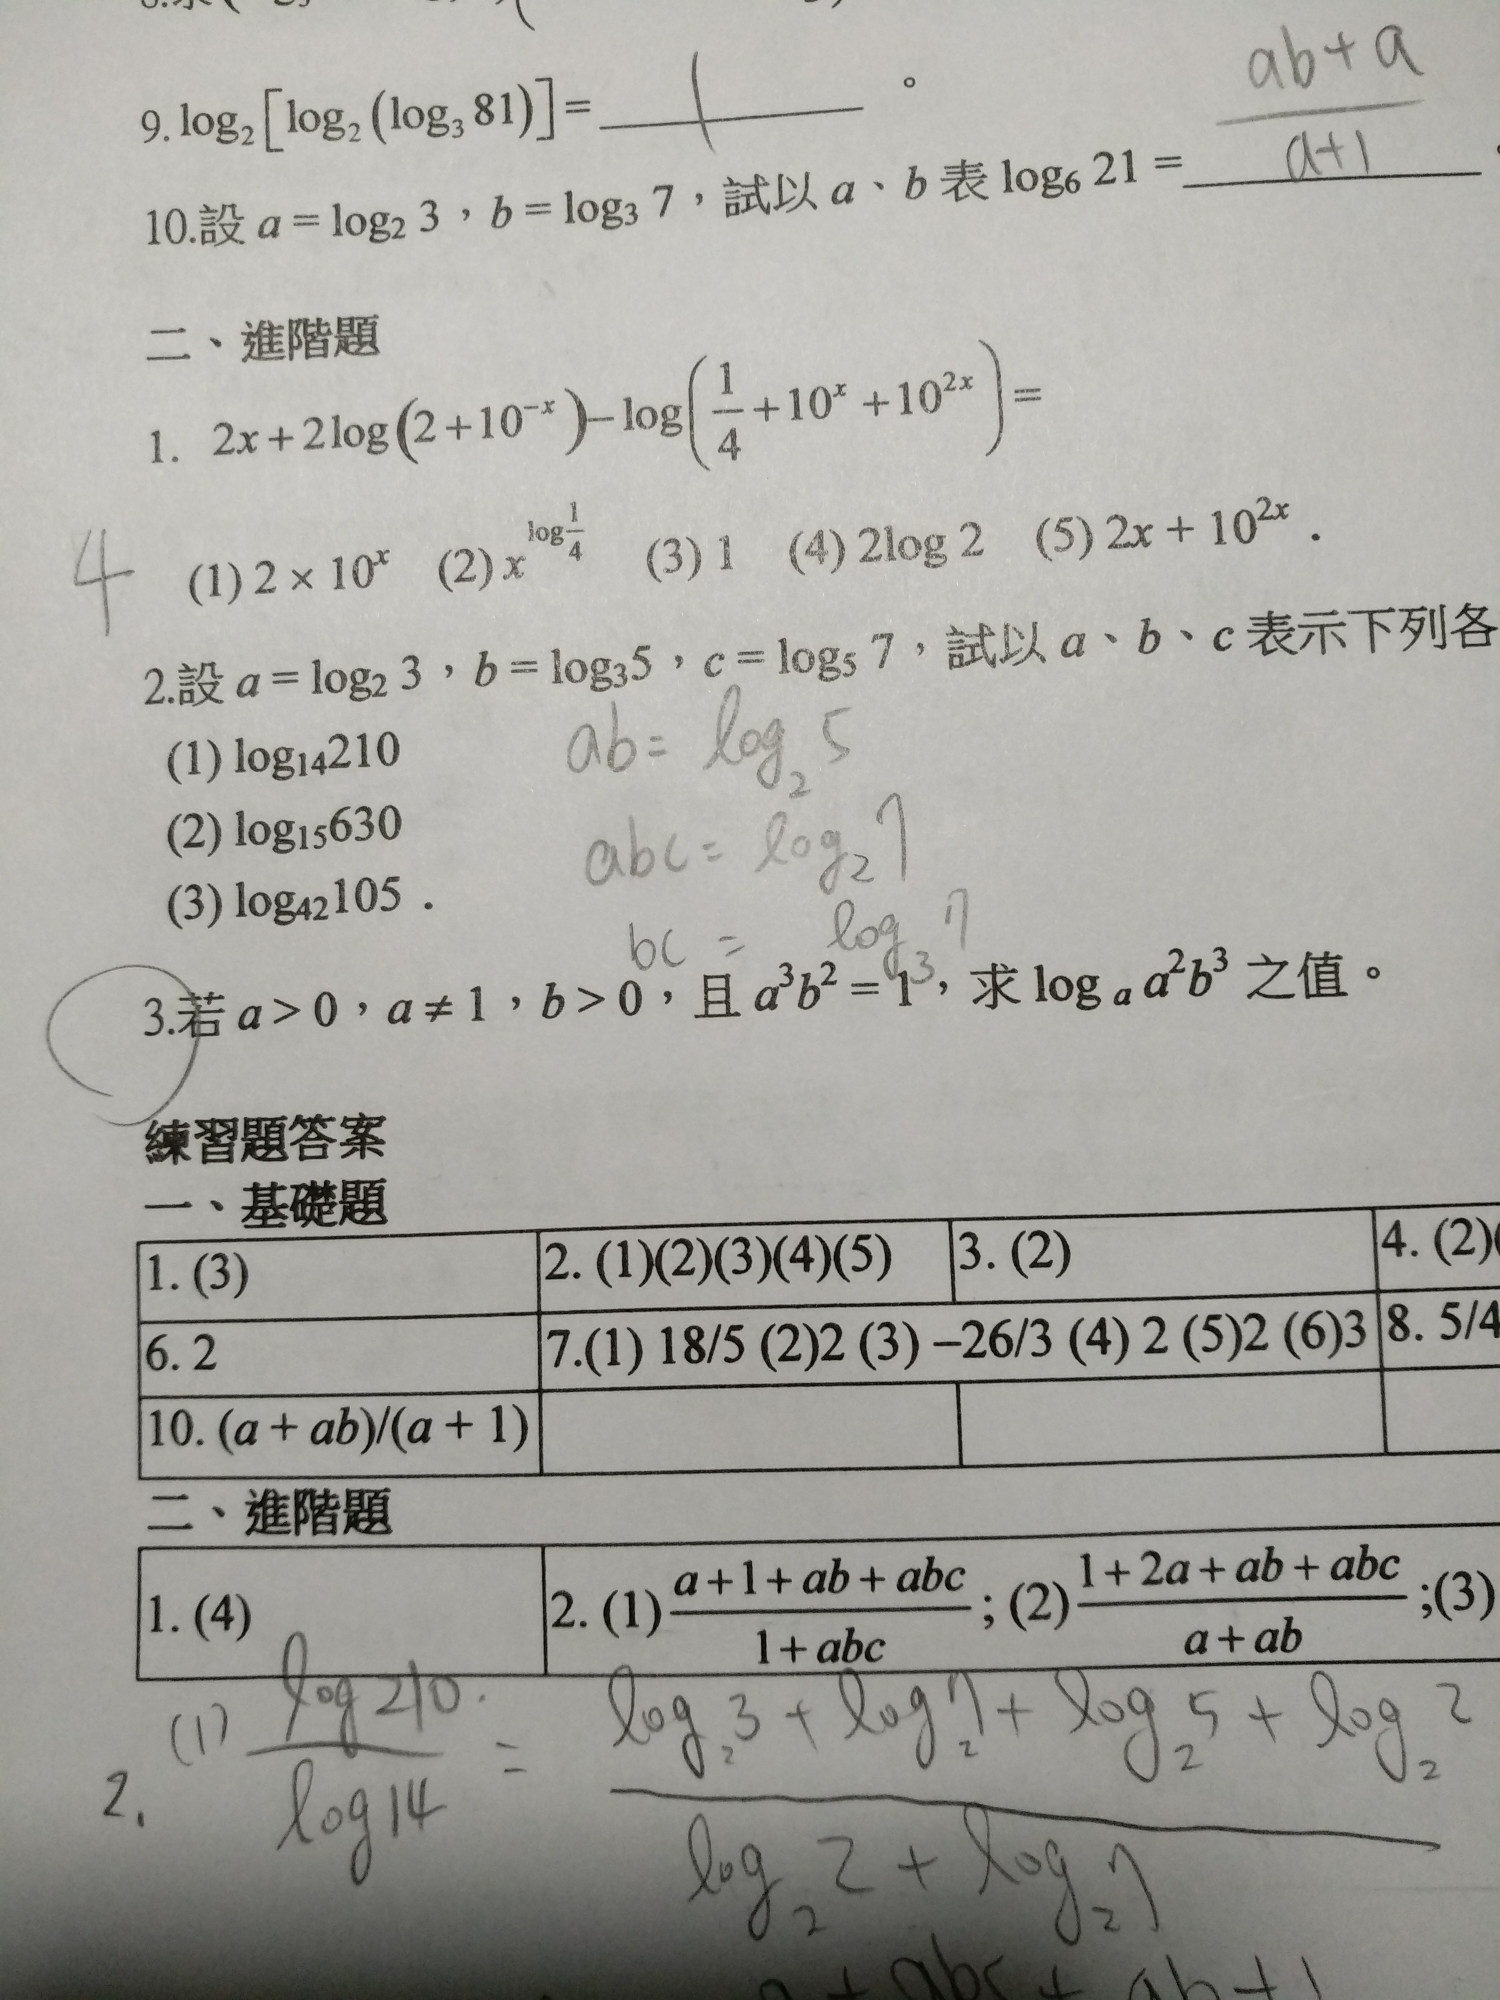 9. log₂[log₂(log₃ 81)] = 1 。
ab+a
a+1
10.設 a = log₂ 3，b = log₃ 7，試以 a、b 表 log₆ 21 =
二、進階題
1. 2x + 2log(2+10⁻ˣ) – log(1/4 + 10ˣ + 10²ˣ) =
4 (1) 2 × 10ˣ (2) x^(log 1/4) (3) 1 (4) 2log 2 (5) 2x + 10²ˣ .
2.設 a = log₂ 3，b = log₃5，c = log₅ 7，試以 a、b、c 表示下列各
(1) log₁₄210 ab = log₂ 5
(2) log₁₅630 abc = log₂ 7
(3) log₄₂105 . bc = log₃ 7
3.若 a > 0，a ≠ 1，b > 0，且 a³b² = 1，求 log ₐ a²b³ 之值。
練習題答案
一、基礎題
1. (3) 2. (1)(2)(3)(4)(5) 3. (2) 4. (2)
6. 2 7.(1) 18/5 (2)2 (3) –26/3 (4) 2 (5)2 (6)3 8. 5/4
10. (a + ab)/(a + 1)
二、進階題
1. (4) 2. (1) (a+1+ab+abc)/(1+abc) ; (2) (1+2a+ab+abc)/(a+ab) ;(3)
2. (1) log 210 / log 14 = (log₂ 3 + log₂ 7 + log₂ 5 + log₂ 2) / (log₂ 2 + log₂ 7)
a + abc + ab + 1